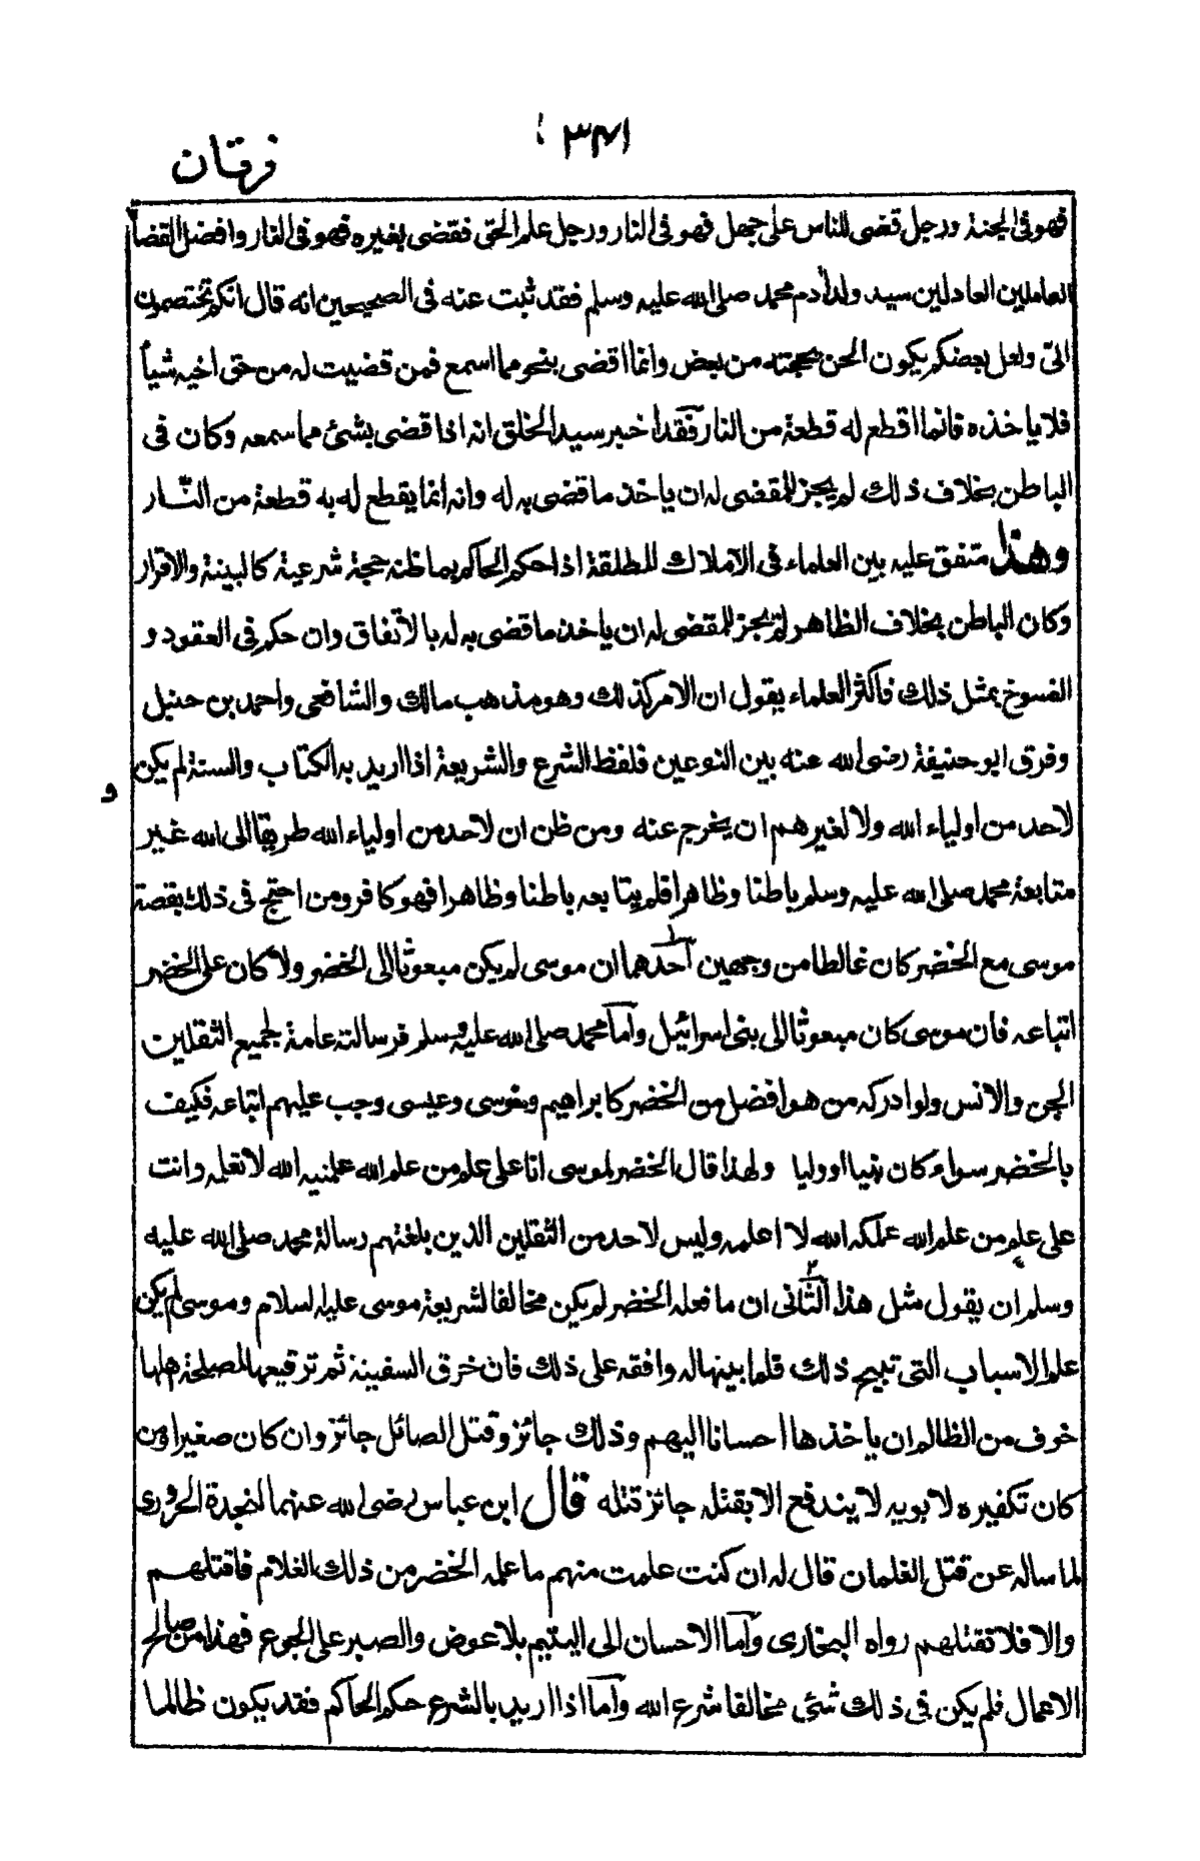 فرقان
فهو فى الجنة ورجل قضى للناس على جهل فهو فى النار ورجل علم الحق فقضى بغيره فهو فى النار وافضل القضاة
العاملين العادلين سيد ولد أدم محمد صلى الله عليه وسلم فقد ثبت عنه فى الصحيحين انه قال انكم تختصمون
الىّ ولعل بعضكم يكون الحن بحجته من بعض وانما اقضى بنحو مما اسمع فمن قضيت له من حق اخيه شيأ
فلا ياخذه فانما اقطع له قطعة من النار فقد اخبر سيد الخلق انه اذا قضى بشئ مما سمعه وكان فى
الباطن بخلاف ذلك لم يجز للمقضى له ان ياخذ ما قضى به له وانه انما يقطع له به قطعة من النّار
وهذا متفق عليه بين العلماء فى الآملاك المطلقة اذا حكم الحاكم بما ظنه حجة شرعية كالبينة والاقرار
وكان الباطن بخلاف الظاهر لم يجز للمقضى له ان ياخذ ما قضى به له بالاتفاق وان حكم فى العقود و
الفسوخ بمثل ذلك فاكثر العلماء يقول ان الامر كذلك وهو مذهب مالك والشافعى واحمد بن حنبل
وفرق ابو حنيفة رضى الله عنه بين النوعين فلفظ الشرع والشريعة اذا اريد به الكتاب والسنة لم يكن
و
لاحد من اولياء الله ولا لغيرهم ان يخرج عنه ومن ظن ان لاحد من اولياء الله طريقا الى الله غير
متابعة محمد صلى الله عليه وسلم باطنا وظاهرا فلم يتابعه باطنا وظاهرا فهو كافر ومن احتج فى ذلك بقصة
موسى مع الخضر كان غالطا من وجهين احدهما ان موسى لم يكن مبعوثا الى الخضر ولا كان على الخضر
اتباعه فان موسى كان مبعوثا الى بنى اسرائيل وآما محمد صلى الله عليه وسلم فرسالته عامة لجميع الثقلين
الجن والانس ولو ادركه من هو افضل من الخضر كابراهيم وموسى وعيسى وجب عليهم اتباعه فكيف
بالخضر سواء كان نبيا او وليا ولهذا قال الخضر لموسى انا على علم من علم الله علمنيه الله لا تعلمه وانت
على علم من علم الله علمكه الله لا اعلمه وليس لاحد من الثقلين الذين بلغتهم رسالة محمد صلى الله عليه
وسلم ان يقول مثل هذا الثانى ان ما فعله الخضر لم يكن مخالفا لشريعة موسى عليه السلام وموسى لم يكن
علم الاسباب التى تبيح ذلك فلما بينها له وافقه على ذلك فان خرق السفينة ثم ترقيعها لمصلحة اهلها
خوف من الظالم ان ياخذها احسانا اليهم وذلك جائز وقتل الصائل جائز وان كان صغيرا ومن
كان تكفيره لابويه لا يندفع الا بقتله جائز قتله قال ابن عباس رضى الله عنهما لنجدة الحرورى
لما ساله عن قتل الغلمان قال له ان كنت علمت منهم ما علمه الخضر من ذلك الغلام فاقتلهم
والا فلا تقتلهم رواه البخارى وآما الاحسان الى اليتيم بلا عوض والصبر على الجوع فهذا من صالح
الاعمال فلم يكن فى ذلك شئ مخالفا شرع الله وآما اذا اريد بالشرع حكم الحاكم فقد يكون ظالما